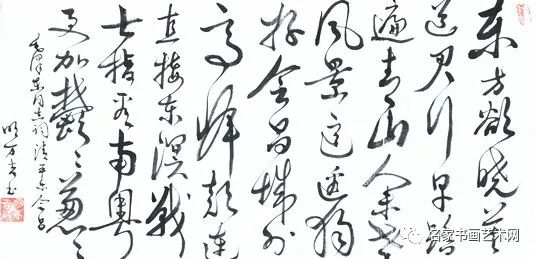 东方欲晓莫
道君行早踏
遍青山人未老
风景这边独
好会昌城外
高峰颠连
直接东溟战
士指看南粤
更加郁々葱々
毛泽东同志词清平乐会昌
名家书画艺术网